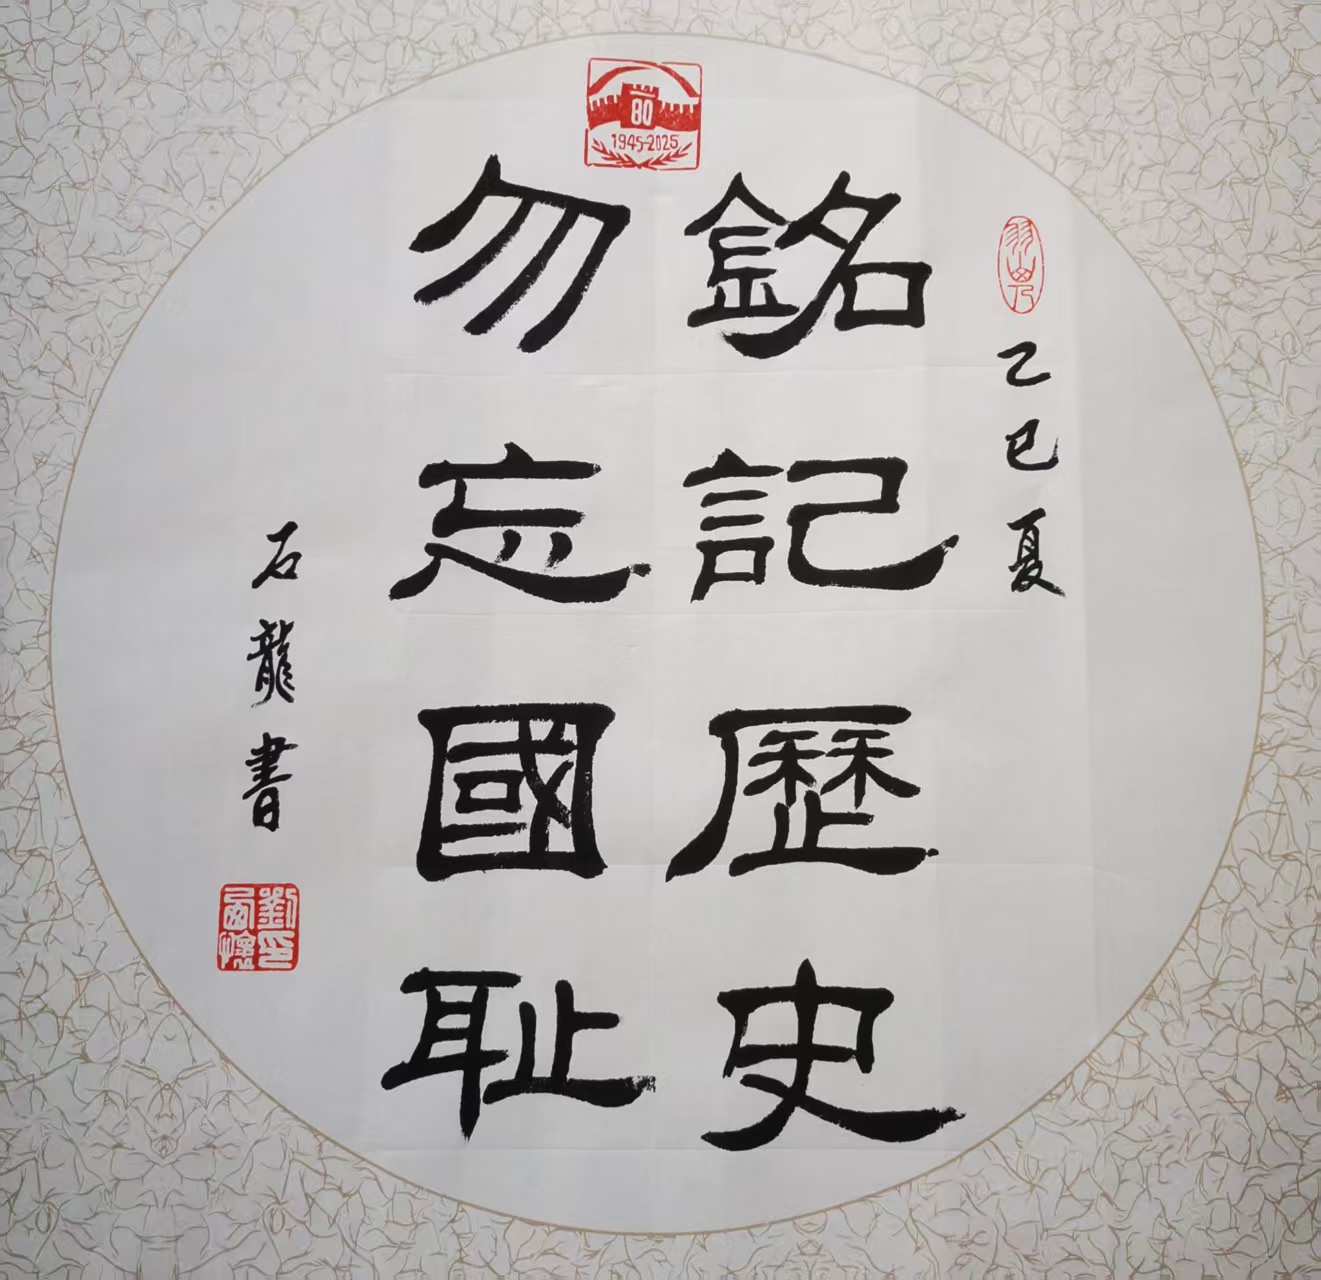 80
1945-2025
乙巳夏
銘記歷史
勿忘國耻
石龍書